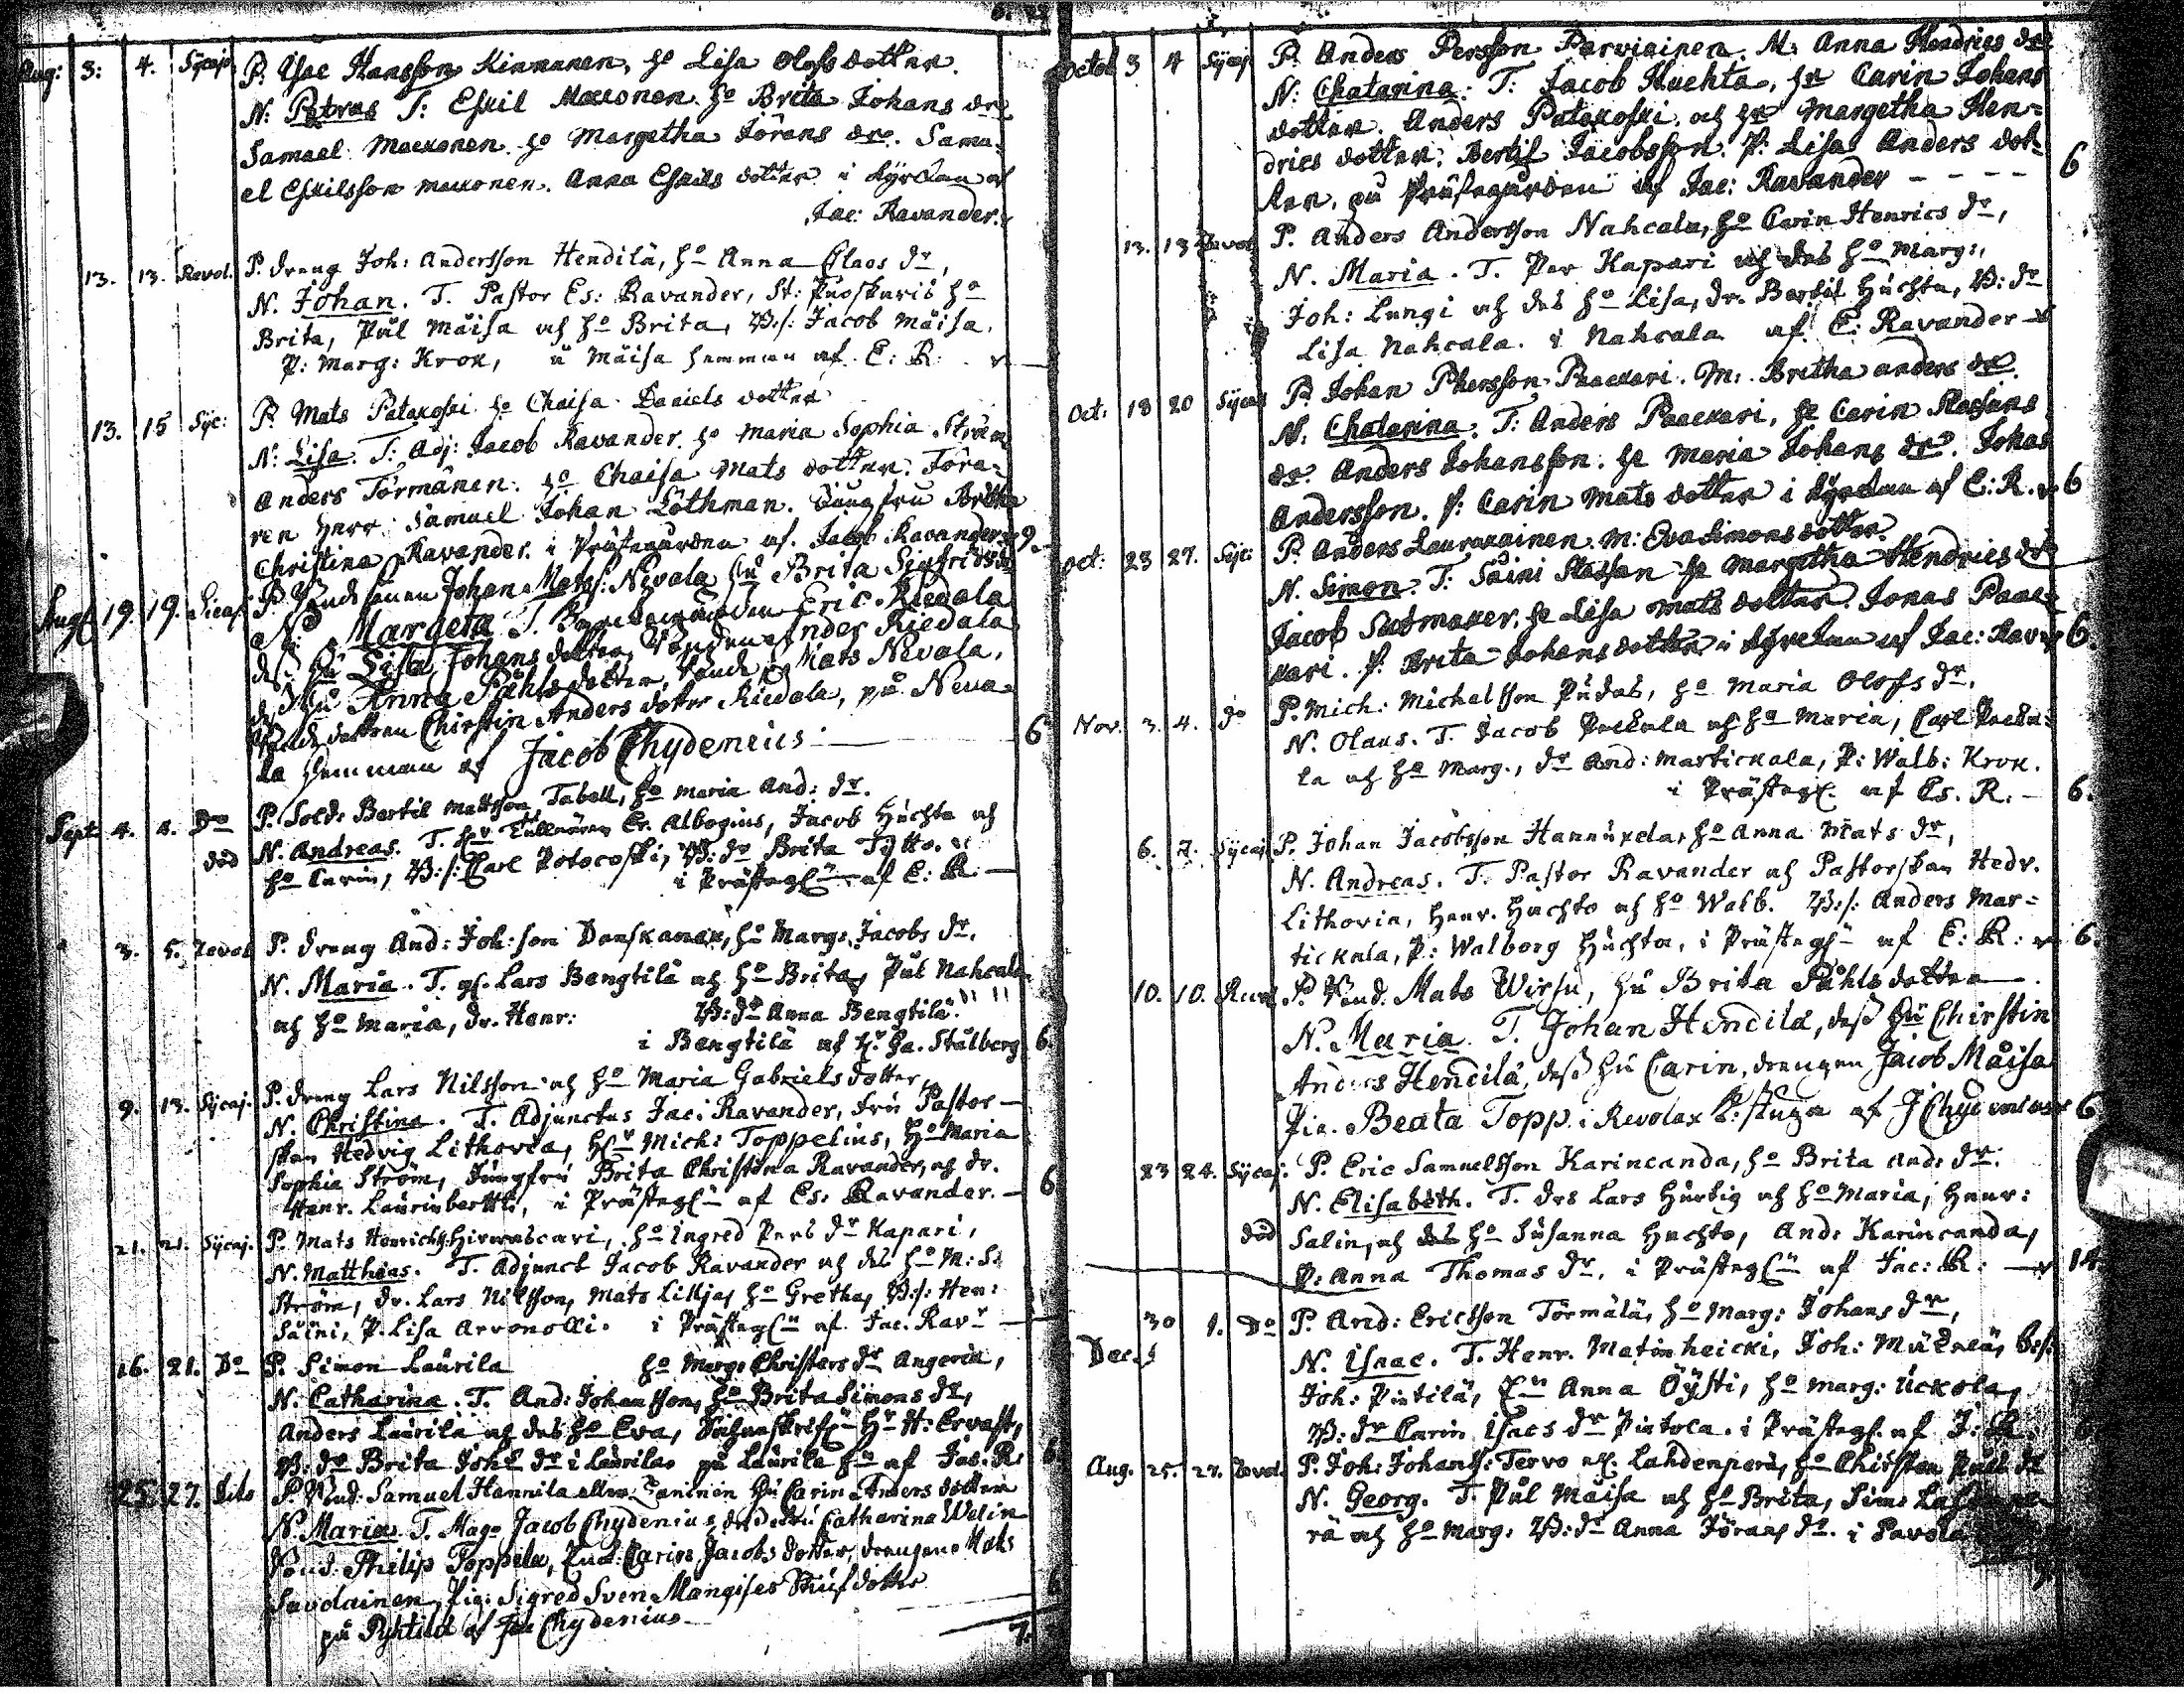 Aug: 3: 4. Sijcajo P. Isac Hansson Kinnunen, ho Lisa Olofs dotter.
N: Petrus T: Eskil Mackonen. ho Brita Johans dr
Samuel Mackonen. ho Margetha Jörans dr. Samu-
el Eskilsson Mackonen. Anna Eskils dotter i kyrckan af
Jac: Ravander.
13. 13. Revol. P. dreng Joh: Andersson Hendilä, ho Anna Claos dr,
N. Johan. T. Pastor Es: Ravander, ho
Brita, Pål Mäisa och ho Brita, B:s: Jacob Mäisa,
P: Marg: Krok, å Mäisa hemman af E: R:
13. 15 Syc: P. Mats Patakoski ho Chaisa Daniels dotter
N: Lisa. T: Adj: Jacob Ravander. ho Maria Sophia Ström
Anders Törmänen. ho Chaisa Mats dotter.
Herr Samuel Johan Löthman. Jungfru Britha
Christina Ravander. i Prästegården af Jacob Ravander 9.
Aug 19. 19. Sicaj. Johan Mats: Nevala hu Brita Sigfrids dr
N: Margeta T. Eric Riedala
dess hu Lisa Johans dotter, Anders Riedala
hu Anna Påhls dotter, Mats Nevala,
dottren Chirstin Anders dotter Riedala, på Neva-
la Hemman af Jacob Chydenius 6
Sept 4. 4. Do P. Sold: Bertil Mattsson Taball, ho Maria And: dr.
död N. Andreas. T. Er. Alboginus, Jacob Huchta och
ho Carin, B:s: Carl Potocoski, B: dr Brita Tytto.
i Prästegln af E: R:
3. 5. Revol P. dreng And: Joh:son Danskanen, ho Marg: Jacobs dr.
N. Maria. T. Lars Bengtilä och ho Brita, Pål Nahcala
och ho Maria, dr. Henr: B: dr Anna Bengtilä.
i Bengtilä af Ga. Stålberg 6.
9. 13. Sijcaj. P. dreng Lars Nilsson och ho Maria Gabriels dotter,
N. Christina. T. Adjunctus Jac: Ravander, fru Pastor-
skan Hedvig Lithovia, Hr Mich: Toppelius, Ho Maria
Sophia Ström, Jungfru Brita Christina Ravander, och dr.
Henr. Laurinbertti, i Prästegln af Es: Ravander. 6
21. 21. Sijcaj. P. Mats Henrichs: Hirvascari, ho Ingred Pers dr Kapari,
N. Matthias. T. Adjunct Jacob Ravander och des ho M: S:
Ström, dr. Lars Nilsson, Mats Lillja, ho Gretha, B:s: Hen:
Säini, P. Lisa Arvonolli. i Prästegln af Jac. Ravr
16. 21. Do P. Simon Laurila ho Marg: Christers dr Angeria,
N. Catharina. T. And: Johansson, ho Brita Simons dr,
Anders Laurila och des ho Eva, Hr H: Ervast,
B: dr Brita Joh: dr i Laurila. på Laurila af Jac: R: 6
25. 27. Dito P. Samuel Hannila hu Carin Anders dotter
N. Maria. T. Mag: Jacob Chydenius, Catharina Welin
Philip Toppila, Carin Jacobs dotter, drengen Mats
Savolainen, Pig: Sigred Sven Mångises dotter
på af Jac Chydenius
7.
Octob 3 4 Sijcaj P. Anders Persson Parviainen. M: Anna Hendrics dr
N: Chatarina. T: Jacob Huchta, hr Carin Johans
dotter. Anders Patakoski och hr Margetha Hen-
drics dotter. Bertil Jacobsson. P: Lisa Anders dot-
ter, på Prästegården af Jac: Ravander 6
13. 13 Revol P. Anders Andersson Nahcala, ho Carin Henrics dr,
N. Maria. T. Per Kapari och des ho Marg:,
Joh: Lungi och des ho Lisa, dr. Bertil Huchta, B: dr
Lisa Nahcala. i Nahcala af E: Ravander
Oct: 18 20 Sijcaj P. Johan Phersson Paackari. M: Britha Anders dr
N: Chatarina. T: Anders Paackari, ho Carin
dr. Anders Johansson. ho Maria Johans dr. Johan
Andersson. P: Carin Mats dotter i kyrckan af E: R. 6
Oct: 23 27. Syc: P. Anders Laurukainen. M: Eva Simons dotter.
N. Simon. T: Säini ho Margetha Hendrics dr
Jacob Sutmaker. ho Lisa Mats dotter. Jonas Paac-
kari. P. Brita Johans dotter i kyrckan af Jac: Rav 6.
Nov. 3. 4. do P. Mich: Michelsson Pudas, ho Maria Olofs dr,
N. Olaus. T. Jacob Pockela och ho Maria, Carl Pocke-
la och ho Marg., dr And: Martickala, P: Walb: Krok.
i Prästegl. af Es. R. 6.
6. 7. Sijcaj P. Johan Jacobsson Hannukela, ho Anna Mats dr,
N. Andreas. T. Pastor Ravander och Pastorskan Hedv.
Lithovia, Henr. Huchta och ho Walb. B:s: Anders Mar-
tickala, P: Walborg Huchta, i Prästegln af E: R: 6.
10. 10. Revol P. Mats Wirsu, hu Brita Påhls dotter
N. Maria. T. Johan Hendilä, dess hu Chirstin
Anders Hendilä, dess hu Carin, drengen Jacob Mäisa
Pig. Beata Topp. i Revolax af J Chydenius 6
23 24. Sijcaj. P. Eric Samuelsson Karincanda, ho Brita And: dr.
N. Elisabeth. T. des Lars Hurtig och ho Maria, Henr:
död Salin, och des ho Susanna Huchto, And: Karincanda,
P: Anna Thomas dr, i Prästegln af Jac: R: 14.
30 1. Do P. And: Ericsson Törmälä, ho Marg: Johans dr,
Dec. N. Isaac. T. Henr. Matinheicki, Joh: Mäkelä, B:s:
Joh: Pintilä, Anna Öysti, ho Marg: Uckola,
B: dr Carin Isacs dr Pintola. i Prästegl. af J: R:
Aug. 25. 27. Revol P. Joh: Johans: Tervo Lahdenperä, ho Chirstin Påls dr
N. Georg. T. Pål Mäisa och ho Brita, Sim: Lahdenpe-
rä och ho Marg: B: dr Anna Jörans dr. i Pavola